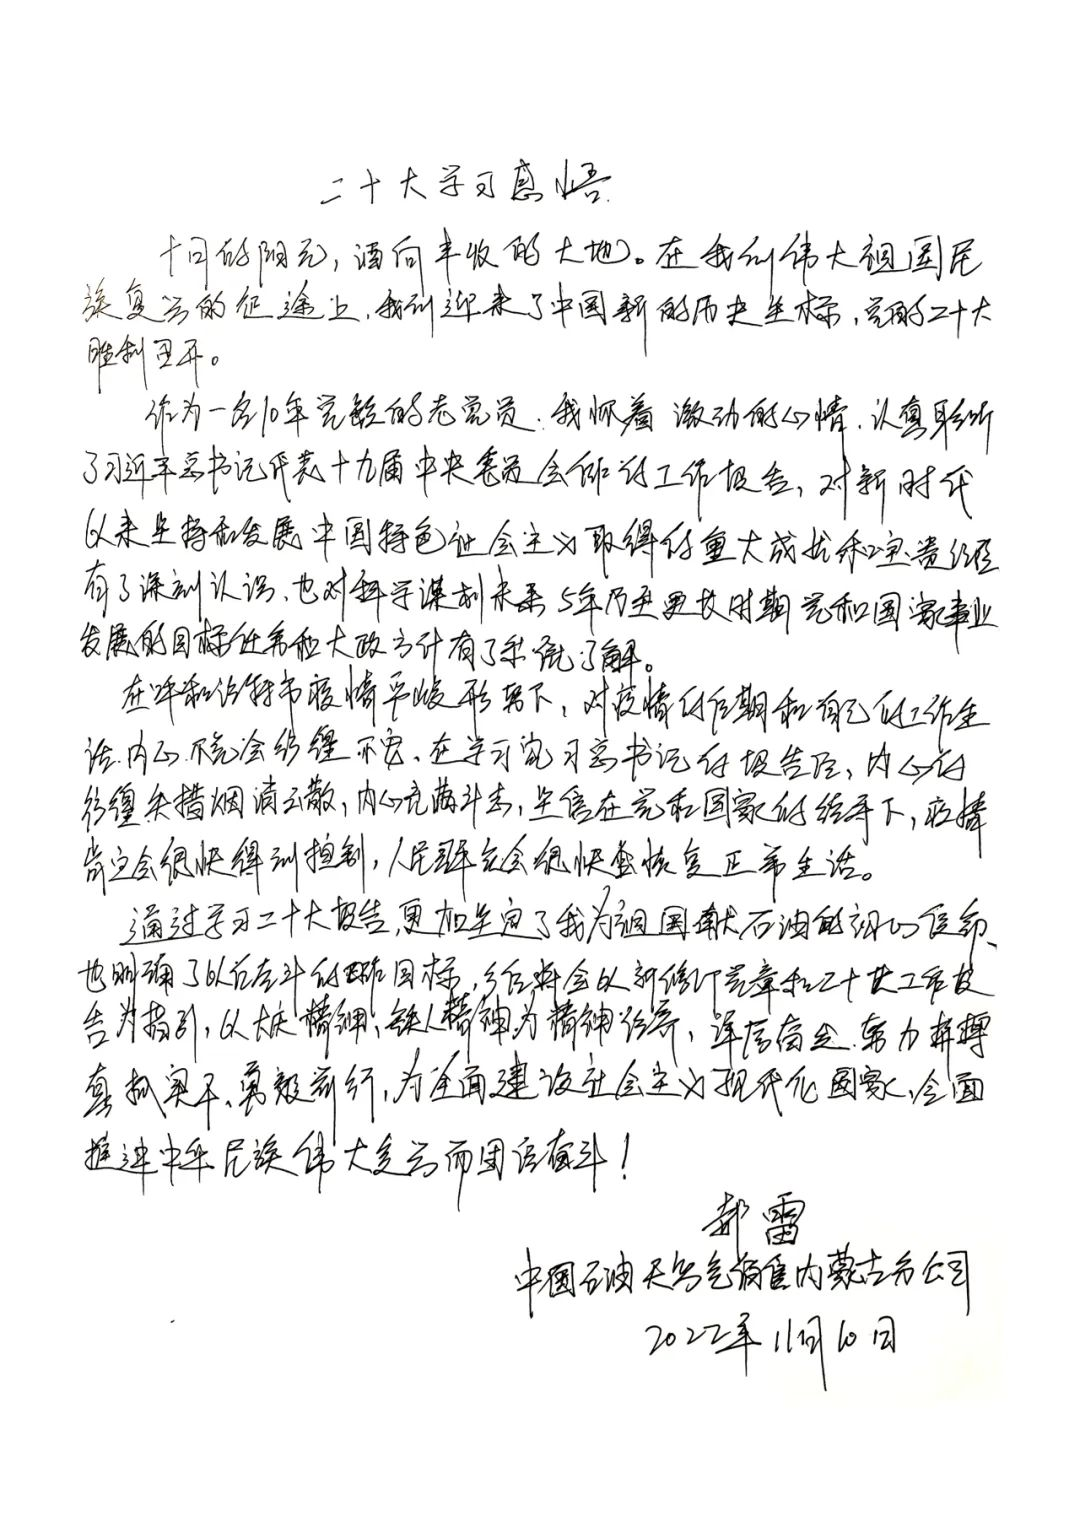 二十大学习感悟
十月的阳光，洒向丰收的大地。在我们伟大祖国民
族复兴的征途上，我们迎来了中国新的历史坐标，党的二十大
胜利召开。
作为一名10年党龄的老党员，我怀着激动的心情，认真聆听
了习近平总书记代表十九届中央委员会作的工作报告，对新时代
以来坚持和发展中国特色社会主义取得的重大成就和宝贵经验
有了深刻认识，也对科学谋划未来5年乃至更长时期党和国家事业
发展的目标任务和大政方针有了系统了解。
在呼和浩特市疫情严峻形势下，对疫情的后期和自己的工作生
活，内心不免会彷徨不安，在学习完习总书记的报告后，内心的
彷徨失措烟消云散，内心充满斗志，坚信在党和国家的领导下，疫情
肯定会很快得到控制，人民群众会很快恢复正常生活。
通过学习二十大报告，更加坚定了我为祖国献石油的初心使命，
也明确了以后奋斗的目标，今后将会以新修订党章和二十大工作报
告为指引，以大庆精神、铁人精神为精神，踔厉奋发、努力拼搏
真抓实干、勇毅前行，为全面建设社会主义现代化国家、全面
推进中华民族伟大复兴而团结奋斗！
郝雷
中国石油天然气销售内蒙古分公司
2022年11月10日